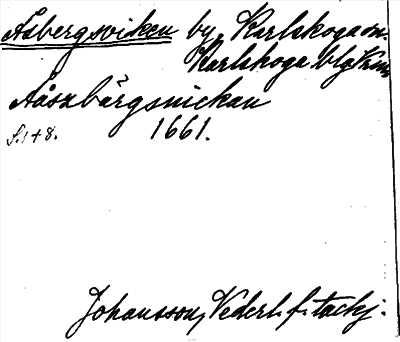 Åsbergsviken by, Karlskoga sn.
Karlskoga blg Vrml.
Ååszbårgzuickan
s. 148. 1661.
Johansson, Vederl. f. tackj.